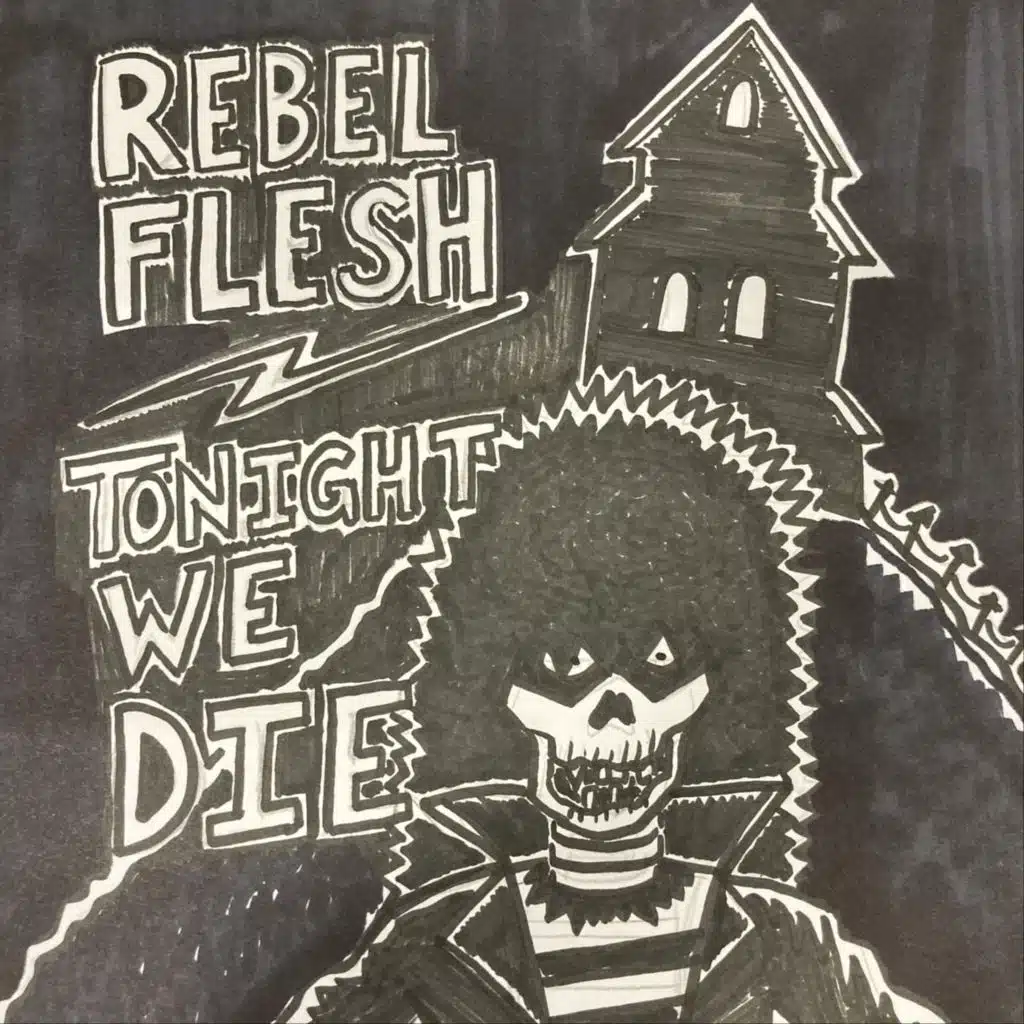 REBEL
FLESH
TONIGHT
WE
DIE